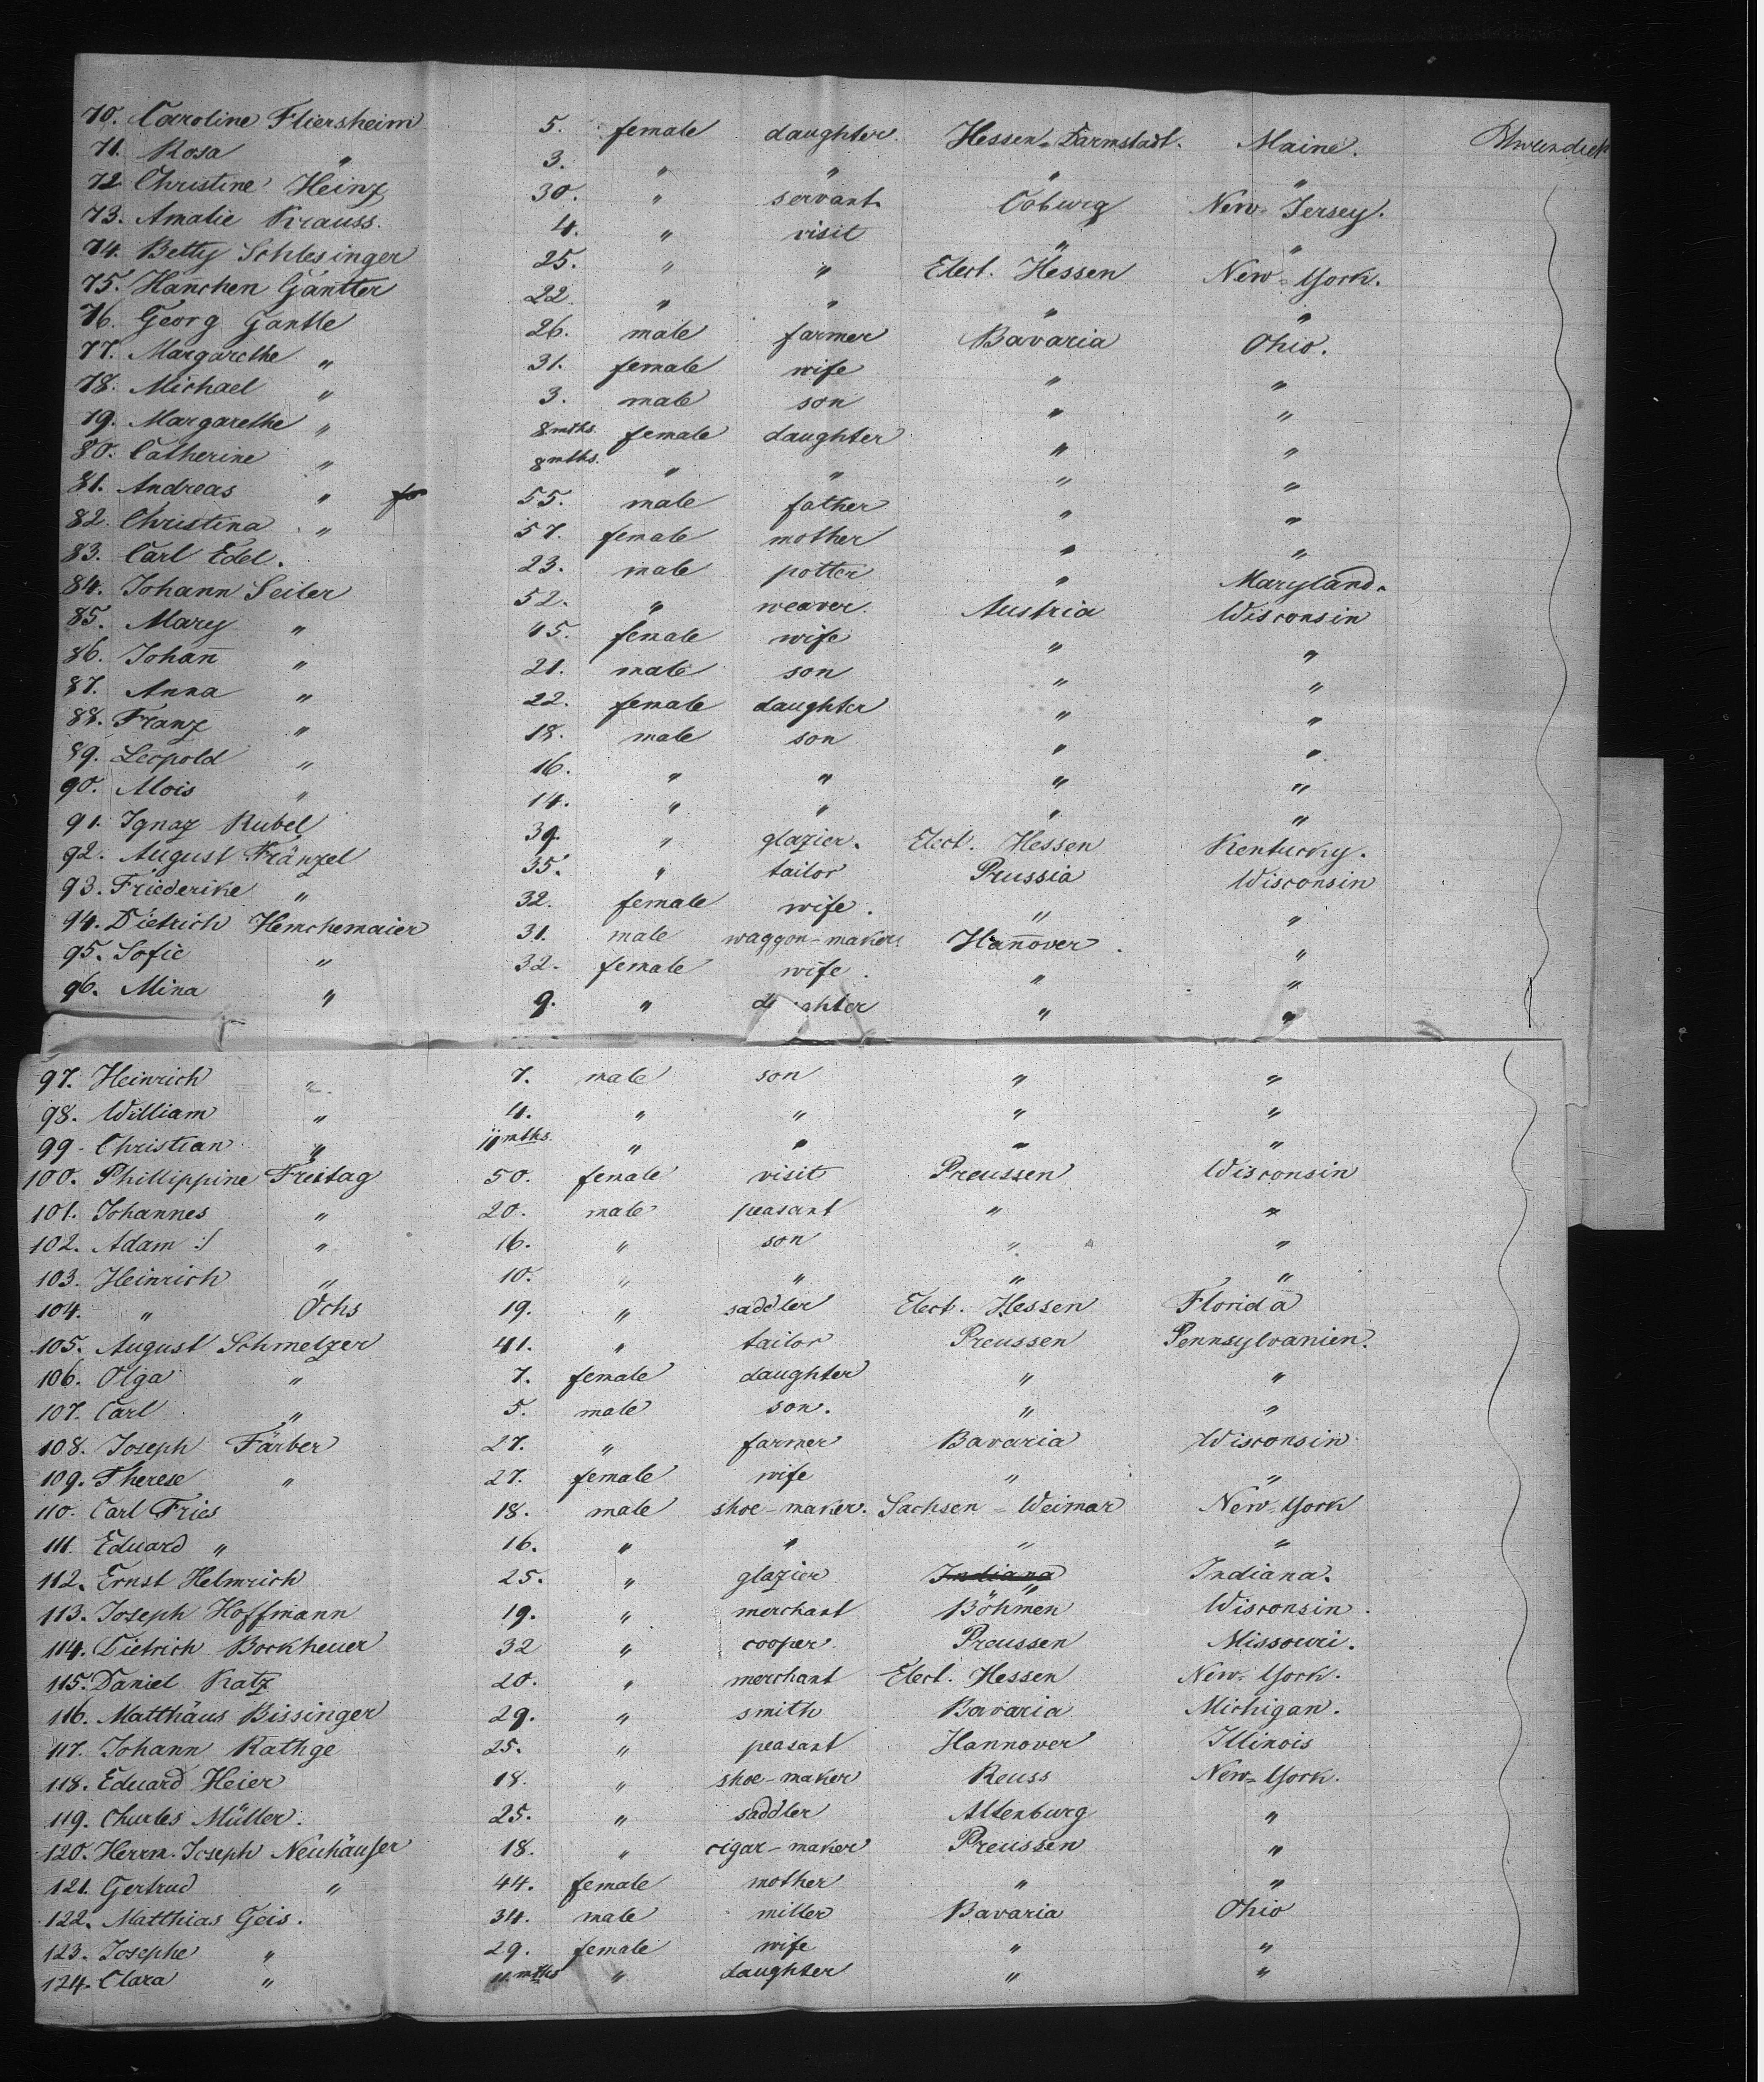 70. Caroline Fliersheim 5. female daughter. Hessen-Darmstadt. Maine.
71. Rosa " 3. " " " "
72. Christine Heinz 30. " servant. Coburg New-Jersey.
73. Amalie Krauss. 4. " visit " "
74. Betty Schlesinger 25. " " Elect. Hessen New-York.
75. Hañchen Gantter 22. " " " "
76. Georg Gantle 26. male farmer Bavaria Ohio.
77. Margarethe " 31. female wife " "
78. Michael " 3. male son " "
79. Margarethe " 8 mths. female daughter " "
80. Catherine " 8 mths. " " " "
81. Andreas " 55. male father " "
82. Christina " 57. female mother " "
83. Carl Edel. 23. male potter " Maryland.
84. Johann Seiler 52. " weaver. Austria Wisconsin
85. Mary " 45. female wife " "
86. Johañ " 21. male son " "
87. Anna " 22. female daughter " "
88. Franz " 18. male son " "
89. Leopold " 16. " " " "
90. Alois " 14. " " " "
91. Ignaz Rubel 39. " glazier. Elect. Hessen Kentucky.
92. August Fränzel 35. " tailor Prussia Wisconsin
93. Friederike " 32. female wife. " "
94. Dietrich Hemchemaier 31. male waggon-maker. Hañover. "
95. Sofie " 32. female wife. " "
96. Mina " 9. " daughter " "
97. Heinrich " 7. male son " "
98. William " 4. " " " "
99. Christian " 11 mths. " " " "
100. Phillippine Freitag 50. female visit Preussen Wisconsin
101. Johannes " 20. male peasant " "
102. Adam :/ " 16. " son " "
103. Heinrich " 10. " " " "
104. " Ochs 19. " saddler Elect. Hessen Florida
105. August Schmelzer 41. " tailor Preussen Pennsylvanien.
106. Olga " 7. female daughter " "
107. Carl " 5. male son. " "
108. Joseph Färber 27. " farmer Bavaria Wisconsin
109. Therese " 27. female wife " "
110. Carl Fries 18. male shoe-maker. Sachsen-Weimar New-York
111. Eduard " 16. " " " "
112. Ernst Helmrich 25. " glazier Indiana " Indiana.
113. Joseph Hoffmann 19. " merchant Böhmen Wisconsin.
114. Dietrich Bockheuer 32 " cooper. Preussen Missouri.
115. Daniel Katz 20. " merchant Elect. Hessen New-York.
116. Matthäus Bissinger 29. " smith Bavaria Michigan.
117. Johann Rathge 25. " peasant Hannover Illinois
118. Eduard Heier 18. " shoe-maker Reuss New-York.
119. Charles Müller. 25. " saddler Altenburg "
120. Herrm. Joseph Neuhäuser 18. " cigar-maker Preussen "
121. Gertrud " 44. female mother " "
122. Matthias Geis. 34. male miller Bavaria Ohio
123. Josephe " 29. female wife " "
124. Clara " 11 mths " daughter " "